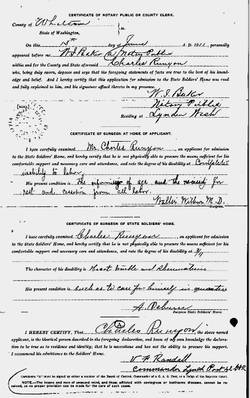 CERTIFICATE OF NOTARY PUBLIC OR COUNTY CLERK.
County of Whatcom
State of Washington,
On this day of June personally
appeared before W. I. Baker a Notary Public
within and for the County and State aforesaid Charles Runyon
who, being duly sworn, deposes and says that the foregoing statements of facts are true to the best of his knowledge
and belief. And I hereby certify that this application for admission to the State Soldiers' Home was read
and fully explained to him, and his signature affixed thereto in my presence.
W. I. Baker
Notary Public
Residing at Lynden Wash
CERTIFICATE OF SURGEON AT HOME OF APPLICANT.
I have carefully examined Mr Charles Runyon an applicant for admission
to the State Soldiers' Home, and hereby certify that he is not physically able to procure the means sufficient for his
comfortable support and necessary care and attendance, and rate the degree of his disability at Complete
inability to labor.
His present condition is The infirmities of age and the necessity for
rest and cessation from all labor.
M. D.
CERTIFICATE OF SURGEON OF STATE SOLDIERS' HOME.
I have carefully examined Charles Runyon an applicant for admission
to the State Soldiers' Home, and hereby certify that he is not physically able to procure the means sufficient for his
comfortable support and necessary care and attendance, and rate the degree of his disability at
The character of his disability is Heart trouble and Rheumatism
His present condition is such as to care for himself in quarters
Surgeon State Soldiers' Home.
I HEREBY CERTIFY, That Charles Runyon the above named
applicant, is the identical person described in the foregoing declaration, and know of my own knowledge the declaration
to be true as to residence and identity, that he is necessitous and has not the ability to procure his support.
I recommend his admittance to the Soldiers' Home.
W. H. Randall
Commander Lynden Post